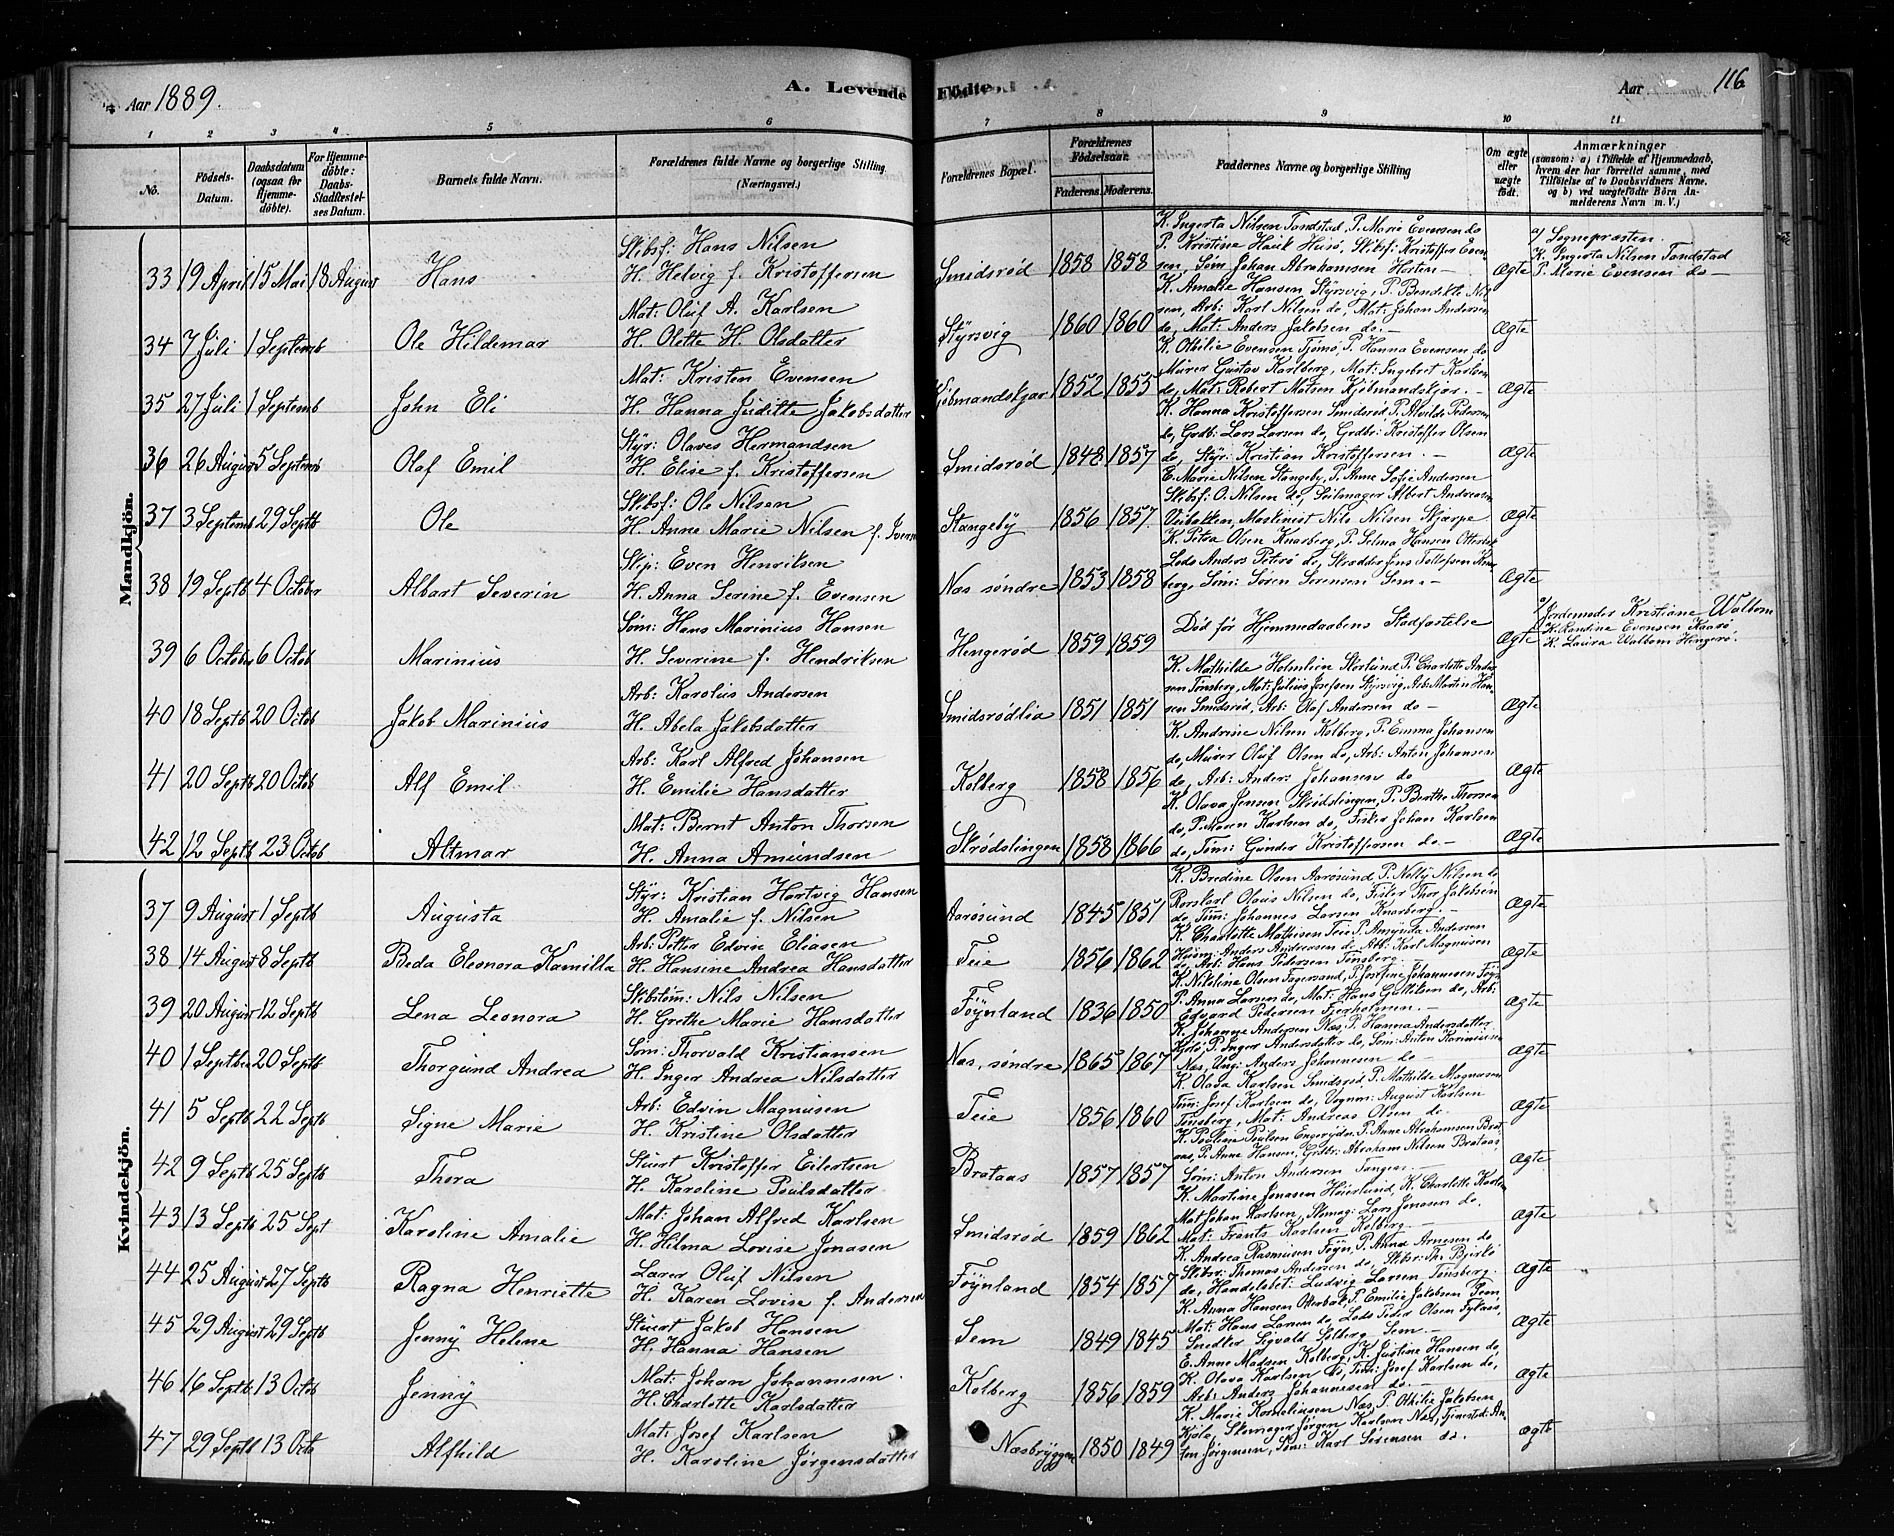 Aar 1889.
A. Levende Födte.
Aar
116
1 2 3 4 5 6 7 8 9 10 11
No.
Födsels-Datum.
Daabsdatum (ogsaa for Hjemme-döbte).
For Hjemme-döbte: Daabs-Stadfæstel-ses Datum.
Barnets fulde Navn.
Forældrenes fulde Navne og borgerlige Stilling. (Næringsvei.)
Forældrenes Bopæl.
Forældrenes Födselsaar.
Faderens. Moderens.
Faddernes Navne og borgerlige Stilling
Om ægte eller uægte födt.
Anmærkninger
(saasom: a) i Tilfælde af Hjemmedaab, hvem der har forrettet samme, med Tilföielse af to Daabsvidners Navne. og b) ved uægtefödte Börn Anmelderens Navn m. V.)
Mandkjön.
33 19 April 15 Mai 18 August Hans
Skibsf: Hans Nilsen
H. Helvig f. Kristoffersen
Smidsrød 1858 1858
K. Ingerta Nilsen Tandstad, P. Marie Evensen do
P. Kristine Havik Husø, Skibsf: Kristoffer Even
sen, Søm. Johan Abrahamsen Horten —
Ægte
a/ Sognepræsten.
K. Ingerta Nilsen Tandstad
P. Marie Evensen do —
34 7 Juli 1 Septemb Ole Hildemar
Mat: Oluf A. Karlsen
H. Olette H. Olsdatter
Styrsvig 1860 1860
K. Amalie Hansen Styrsvig, P. Bendikte Nil
sen, Arb: Karl Nilsen do, Mat: Johan Andersen
do, Mat: Anders Jakobsen do. —
Ægte
35 27 Juli 1 Septemb John Eli
Mat: Kristen Evensen
H. Hanna Juditte Jakobsdatter
Kjøbmandskjær 1852 1855
K. Othilie Evensen Tjømø, P. Hanna Evensen do
Murer Gustav Karlberg, Mat: Ingebert Karlsen
do, Mat: Robert Matsen Kjøbmandskjær. —
Ægte
36 26 August 5 Septemb Olaf Emil
Styr: Olaves Hermandsen
H. Elise f. Kristoffersen
Smidsrød 1848 1857
K. Hanna Kristoffersen Smidsrød, P. Alvilde Pedersen
do, Grdb: Lars Larsen do, Grdbr: Kristoffer Olsen
do, Styr: Kristian Kristoffersen. —
Ægte
37 3 Septemb 29 Septb Ole
Skibsf: Ole Nilsen
H. Anne Marie Nilsen f. Iversen
Stangeby 1856 1857
E. Marie Nilsen Stangeby, P. Anne Sofie Andersen
Skibsf: O. Nilsen do, Seilmager Albert Andreasen
Veibakken, Maskinist Nils Nilsen Skjærpe
Ægte
38 19 Septb 4 October Albart Severin
Skip: Even Henriksen
H. Anna Serine f. Evensen
Næs søndre 1853 1858
K. Petra Olsen Knarberg, P. Selma Hansen Otterbæk
Lods Anders Peterø do, Skrædder Jens Tollefsen Knar
berg, Søm: Søren Sørensen Sem. —
Ægte
39 6 October 6 Octob Marinius
Søm: Hans Marinius Hansen
H. Severine f. Hendriksen
Hengerød 1859 1859
Død før Hjemmedaabens Stadfæstelse
Ægte
a/ Jordemoder Kristiane Walbom
K. Randine Evensen Kaarø
K. Laura Walbom Hengerø.
40 18 Septb 20 Octob Jakob Marinius
Arb: Karolus Andersen
H. Abela Jakobsdatter
Smidsrødlia 1851 1851
K. Mathilde Holmlien Skorlund P. Charlotte Ander
sen Tønsberg, Mat: Julius Josefsen Styrsvig, Arb: Martin Han
sen Smidsrød, Arb: Olaf Andersen do —
Ægte
41 20 Septb 20 Octob Alf Emil
Arb: Karl Alfred Johansen
H. Emilie Hansdatter
Kolberg 1858 1856
K. Andrine Nilsen Kolberg, P. Emma Johansen
do, Murer Oluf Olsen do, Arb: Anton Johansen
do, Arb: Anders Johansen do
Ægte
42 12 Septb 23 Octob Altmar
Mat: Bernt Anton Thorsen
H. Anna Amundsen
Skrødslingen 1858 1866
K. Olava Jensen Skrødslingen, P. Berthe Thorsen
do, P. Maren Karlsen do, Fisker Johan Karlsen
do, Tøm: Gunder Kristoffersen do —
Ægte
Kvindekjön.
37 9 August 1 Septb Augusta
Styr: Kristian Hartvig Hansen
H. Amalie f. Nilsen
Aarøsund 1845 1851
K. Bredine Olsen Aarøsund P. Nelly Nilsen do
Olaus Nilsen do, Fisker Thor Jakobsen
do, Tøm: Johannes Larsen Knarberg. —
Ægte
38 14 August 8 Septb Beda Eleonora Kamilla
Arb: Petter Edvin Eliasen
H. Hansine Andrea Hansdatter
Teie 1856 1862
K. Charlotte Mathisen Teie P. Amunda Andersen
Husm: Anders Andreasen do Arb: Karl Magnusen
do, Arb: Hans Pedersen Tønsberg.
Ægte
39 20 August 12 Septb Lena Leonora
Skibstøm: Nils Nilsen
H. Grethe Marie Hansdatter
Føynland 1836 1850
K. Nikoline Olsen Fagersand, P. Josefine Johannesen Føyn
P. Anna Larsen do, Mat: Hans Gulliksen do, Arb:
Edvard Pedersen Fjærholmen. —
Ægte
40 1 Septbr 20 Septb Thorgund Andrea
Søm: Thorvald Kristiansen
H. Inger Andrea Nilsdatter
Næs, søndre 1865 1867
K. Johanne Andersen Næs, P. Hanna Andersdatter
Kjølø, P. Inger Andersdatter do, Søm: Anton Marinusen
Næs, Ung: Anders Johannesen do —
Ægte
41 5 Septb 22 Septb Signe Marie
Arb: Edvin Magnusen
H. Kristine Olsdatter
Teie 1856 1860
K. Olava Karlsen Smidsrød, P. Mathilde Magnusen
Tøm: Josef Karlsen do, Vognm: August Karlsen
Tønsberg, Mat: Andreas Olsen do.
Ægte
42 9 Septb 25 Septb Thora
Stuert Kristoffer Eilertsen
H. Karoline Poulsdatter
Brataas 1857 1857
K. Poline Poulsen Engerjyder, P. Anne Abrahamsen Brat
aas, P. Anne Hansen, Grdbr: Abraham Nilsen Brataas,
Søm: Anton Andersen Tangen. —
Ægte
43 13 Septb 25 Sept Karoline Amalie
Mat: Johan Alfred Karlsen
H. Hilma Lovise Jonasen
Smidsrød 1859 1862
K. Martine Jonasen Høierlund, K. Charlotte Karlsen
Mat Johan Karlsen, Skomag: Lars Jonasen do.
Mat: Frants Karlsen Kolberg. —
Ægte
44 25 August 27 Septb Ragna Henriette
Lærer Oluf Nilsen
H. Karen Lovise f. Andersen
Føynland 1854 1857
K. Andrea Rasmusen Føyn, P. Anna Arnesen do
Skibsr: Thomas Andersen do, Skibsr: Th. Bjerkø
do, Handelsbet: Ludvig Larsen Tønsberg.
Ægte
45 29 August 29 Septb Jenny Helene
Stuert Jakob Hansen
H. Hanna Hansen
Sem 1849 1845
K. Anna Hansen Oterbæk, P. Emilie Jakobsen Sem,
Mat: Hans Larsen do, Lods Peder Olsen Fyknes,
Snedker Sigvald Solberg Sem. —
Ægte
46 16 Septb 13 Octob Jenny
Mat: Johan Johannesen.
H. Charlotte Karlsdatter
Kolberg 1856 1859
E. Anne Madsen Kolberg, K. Justine Hansen do,
K. Olava Karlsen do, Tøm: Josef Karlsen do,
Arb: Anders Johannesen do. —
Ægte
47 29 Septb 13 Octo Alfhild
Mat: Josef Karlsen
H. Karoline Jørgensdatter
Næsbryggen 1850 1849
K. Marie Korneliusen Næs, P. Othilie Jakobsen
Kjøle, Skomager Jørgen Karlsen Næs, Tjenestd: An
ton Jørgensen, Søm: Karl Sørensen do.
Ægte